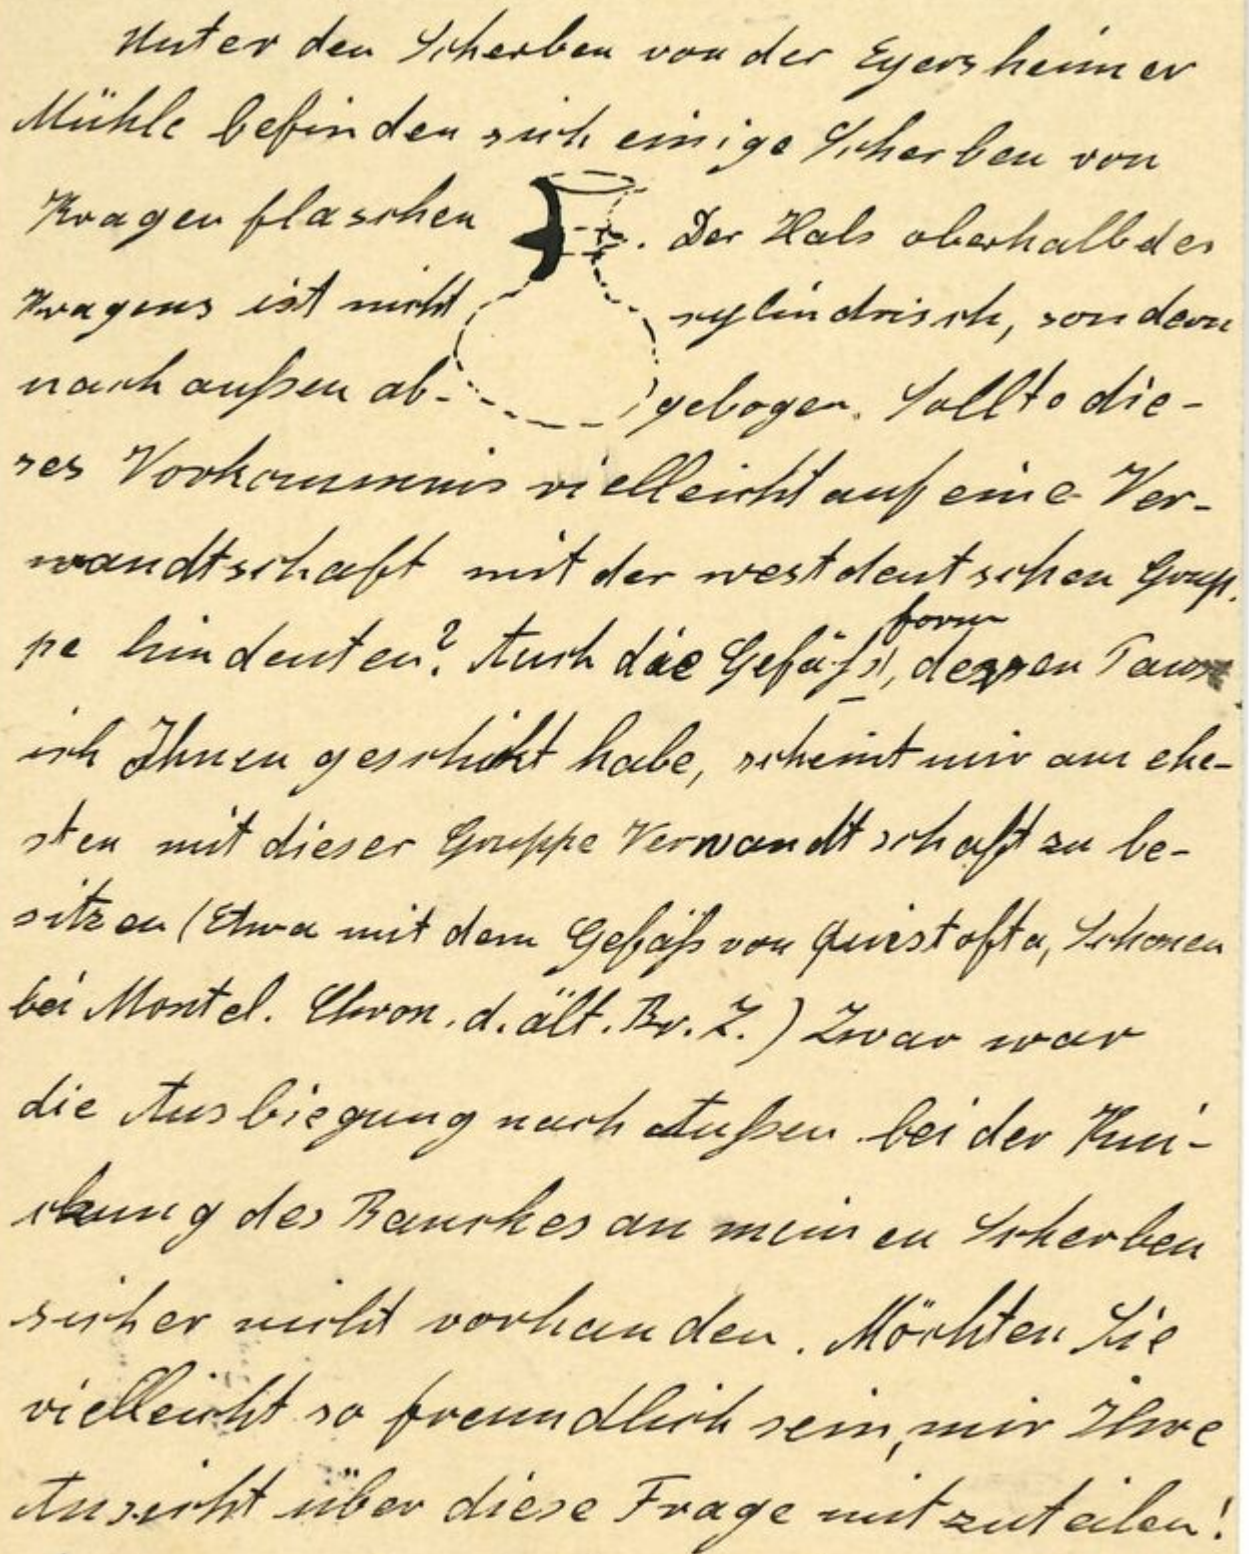 Unter den Scherben von der Eyersheimer
Mühle befinden sich einige Scherben von
Kragenflaschen . Der Hals oberhalb des
Kragens ist nicht zylindrisch, sondern
nach außen ab- gebogen. Sollte die-
ses Vorkommnis vielleicht auf eine Ver-
wandtschaft mit der westdeutschen Grup-
pe hindeuten? Auch die Gefäßform, deren
ich Ihnen geschickt habe, scheint mir am ehe-
sten mit dieser Gruppe Verwandtschaft zu be-
sitzen (Etwa mit dem Gefäß von Quistofta, Schonen
bei Montel. Chron. d. ält. Br. Z.) Zwar war
die Ausbiegung nach Außen bei der Kni-
ckung des Bauches an meinen Scherben
sicher nicht vorhanden. Möchten Sie
vielleicht so freundlich sein, mir Ihre
Ansicht über diese Frage mitzuteilen!